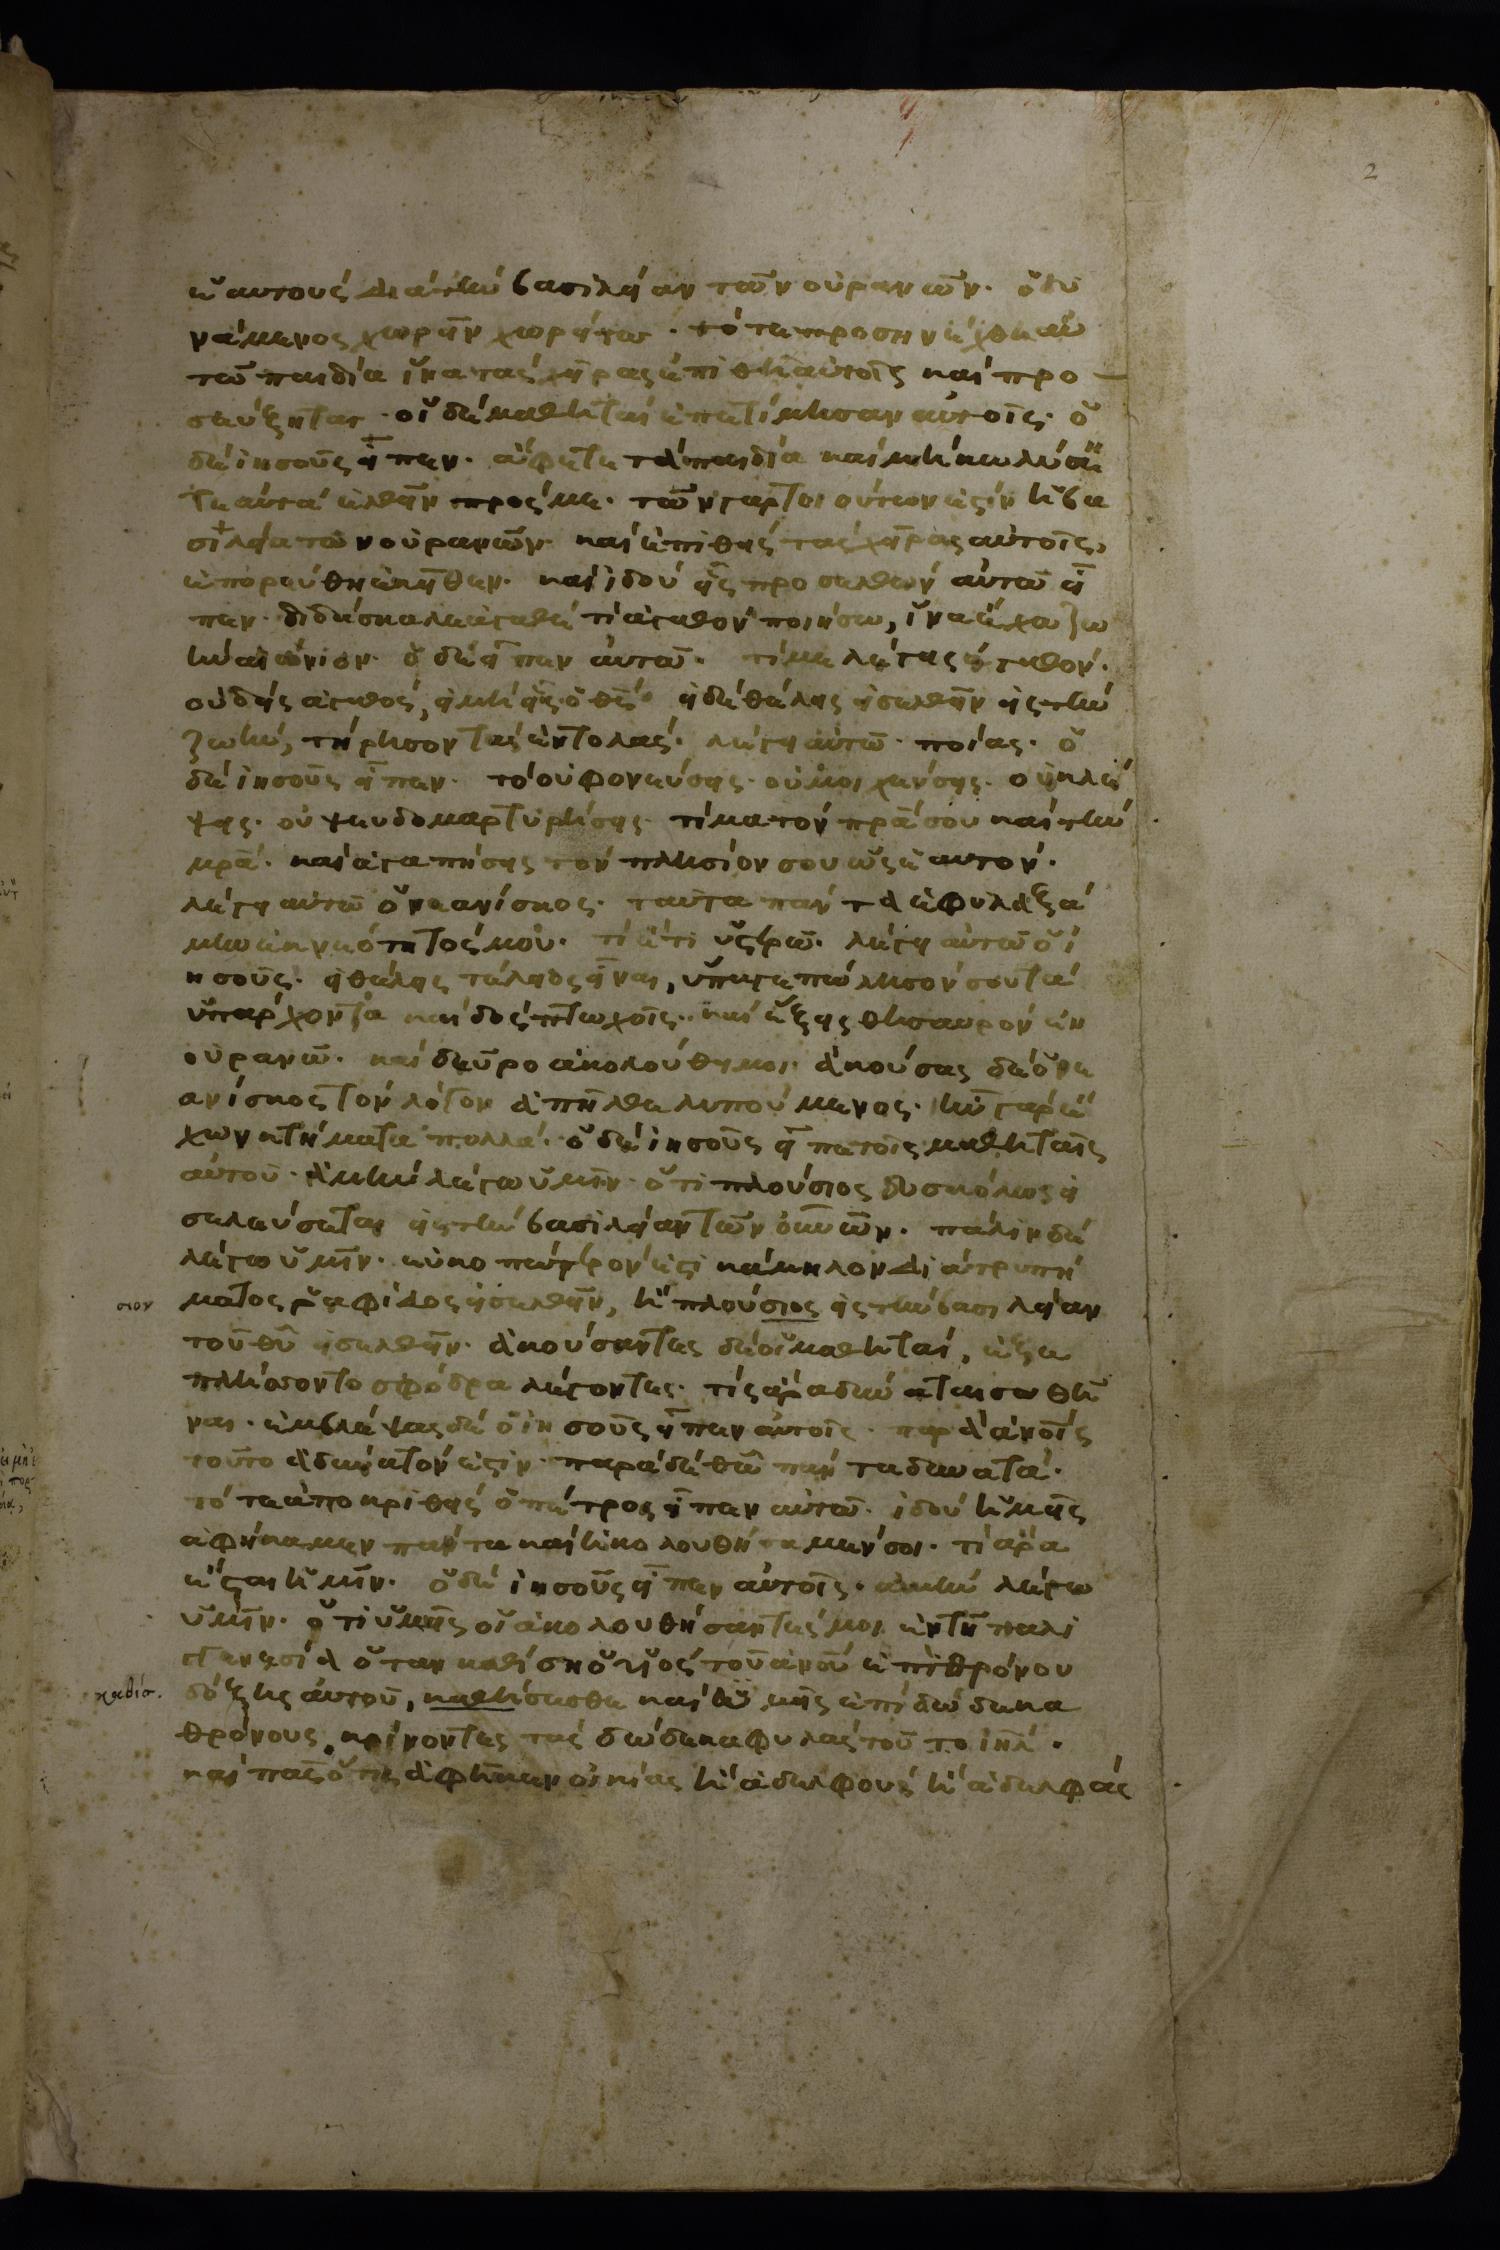 2
ἑαυτοὺς διὰ τὴν βασιλείαν τῶν οὐρανῶν. ὁ δυ
νάμενος χωρεῖν χωρείτω. τότε προσηνέχθη αὐ
τῶ παιδία ἵνα τὰς χεῖρας ἐπιθῆ αὐτοῖς καὶ προ
σεύξηται. οἱ δὲ μαθηταὶ ἐπετίμησαν αὐτοῖς. ὁ
δὲ ἰησοῦς εἶπεν. ἄφετε τὰ παιδία καὶ μὴ κωλύση
τε αὐτὰ ἐλθεῖν πρός με. τῶν γὰρ τοιούτων ἐςὶν ἡ βα
σιλεία τῶν οὐρανῶν. καὶ ἐπιθεὶς τὰς χεῖρας αὐτοῖς,
ἐπορεύθη ἐκεῖθεν. καὶ ἰδοὺ εἷς προσελθὼν αὐτῶ εἶ
πεν. διδάσκαλε ἀγαθὲ τί ἀγαθὸν ποιήσω, ἵνα ἔχω ζω
ὴν αἰώνιον. ὁ δὲ εἶπεν αὐτῶ. τί με λέγεις ἀγαθόν.
οὐδεὶς ἀγαθὸς, εἰ μὴ εἷς ὁ θς̄. εἰ δὲ θέλεις εἰσελθεῖν εἰς τὴν
ζωὴν, τήρησον τὰς ἐντολάς. λέγει αὐτῶ. ποίας. ὁ
δὲ ἰησοῦς εἶπεν. τὸ οὐ φονεύσεις. οὐ μοιχεύσεις. οὐ κλέ
ψεις. οὐ ψευδομαρτυρήσεις. τίμα τὸν πρ̄α σου καὶ τὴν
μρ̄α. καὶ ἀγαπήσεις τὸν πλησίον σου ὡς ἑαυτόν.
λέγει αὐτῶ ὁ νεανίσκος. ταῦτα πάντα ἐφυλαξά
μην ἐκ νεότητός μου. τί ἔτι ὑςερῶ. λέγει αὐτῶ ὁ ἰ
ησοῦς. εἰ θέλεις τέλειος εἶναι, ὕπαγε πώλησόν σου τὰ
ὑπάρχοντα καὶ δὸς πτωχοῖς. καὶ ἕξεις θησαυρὸν ἐν
οὐρανῶ. καὶ δεῦρο ἀκολούθει μοι. ἀκούσας δὲ ὁ νε
ανίσκος τὸν λόγον ἀπῆλθε λυπούμενος. ἦν γὰρ ἔ
χων κτήματα πολλά. ὁ δὲ ἰησοῦς εἶπε τοῖς μαθηταῖς
αὐτοῦ. ἀμὴν λέγω ὑμῖν. ὅτι πλούσιος δυσκόλως εἰ
σελεύσεται εἰς τὴν βασιλείαν τῶν οὐν̄ῶν. πάλιν δὲ
λέγω ὑμῖν. εὐκοπώτερόν ἐςι κάμηλον διὰ τρυπή
σιον ματος ῥαφίδος εἰσελθεῖν, ἢ πλούσιος εἰς τὴν βασιλείαν
τοῦ θῡ εἰσελθεῖν. ἀκούσαντες δὲ οἱ μαθηταὶ, ἐξε
πλήσσοντο σφόδρα λέγοντες. τίς ἄρα δύναται σωθῆ
ναι. ἐμβλέψας δὲ ὁ ἰησοῦς εἶπεν αὐτοῖς. παρὰ ἀν̄οις
τοῦτο ἀδύνατόν ἐςιν. παρὰ δὲ θω̄ πάντα δυνατά.
τότε ἀποκριθεὶς ὁ πέτρος εἶπεν αὐτῶ. ἰδοὺ ἡμεῖς
ἀφήκαμεν πάντα καὶ ἠκολουθήσαμέν σοι. τί ἄρα
ἔςαι ἡμῖν. ὁ δὲ ἰησοῦς εἶπεν αὐτοῖς. ἀμὴν λέγω
ὑμῖν. ὅτι ὑμεῖς οἱ ἀκολουθήσαντές μοι ἐν τῆ παλι
γγενεσία ὅταν καθίση ὁ υἱὸς τοῦ ἀν̄ου ἐπὶ θρόνου
καθίσ. δόξης αὐτοῦ, καθήσεσθε καὶ ὑμεῖς ἐπὶ δώδεκα
θρόνους, κρίνοντες τὰς δώδεκα φυλὰς τοῦ το ἰη̄λ.
καὶ πᾶς ὅςις ἀφῆκεν οἰκίας ἢ ἀδελφοὺς ἢ ἀδελφὰς